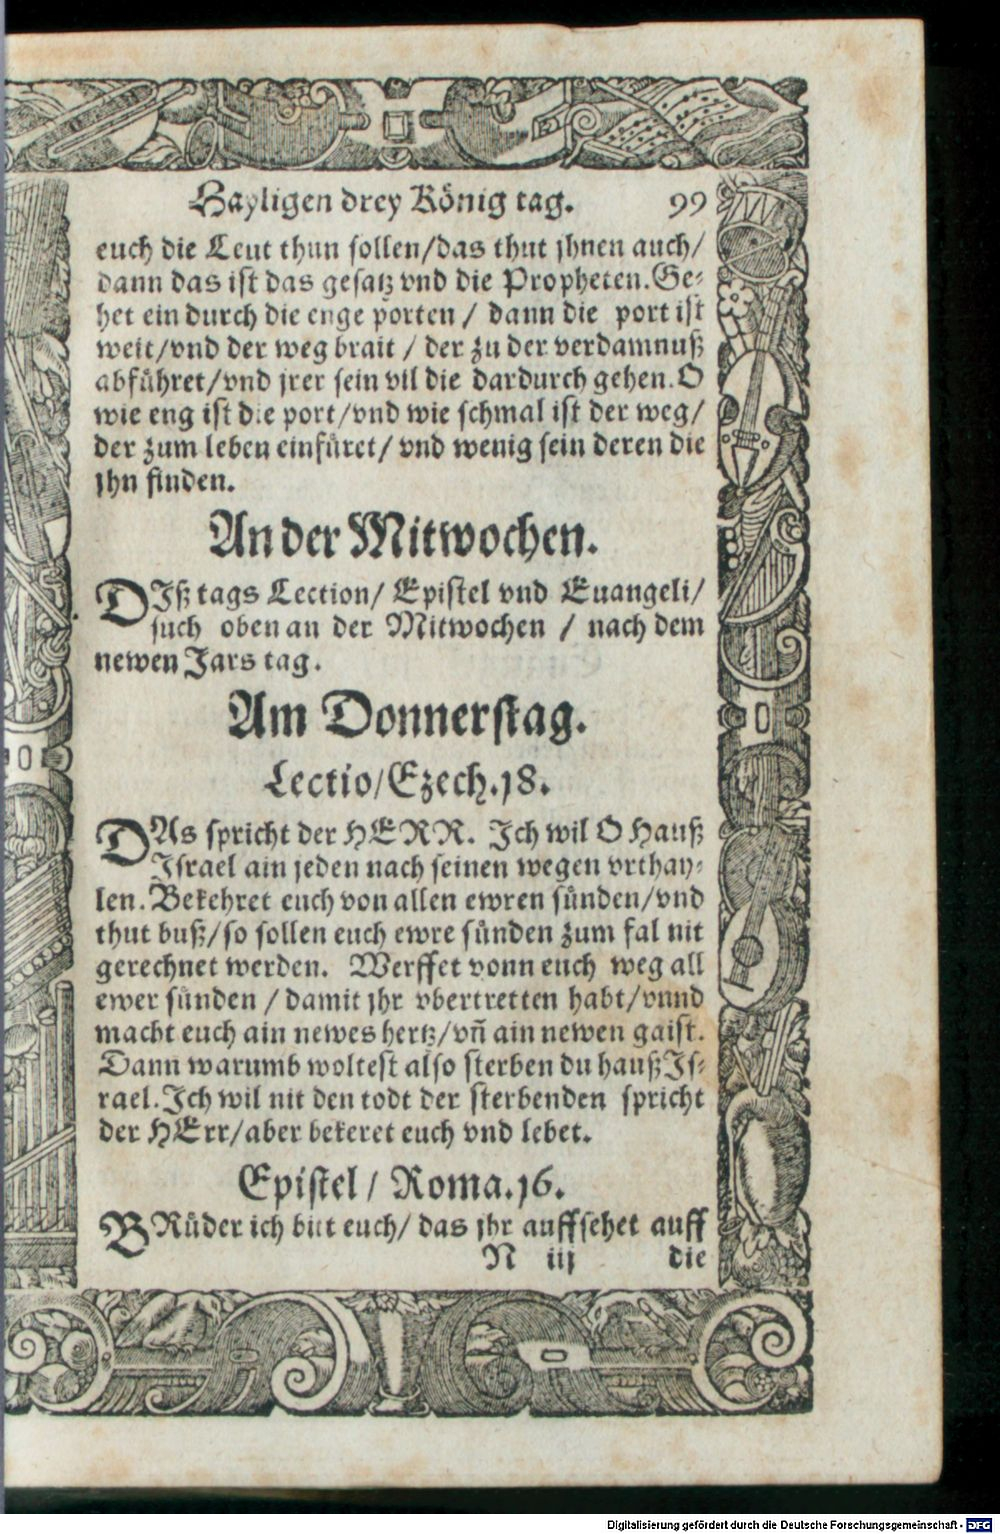 Hayligen drey König tag. 99
euch die Leut thun sollen/das thut jhnen auch/
dann das ist das gesatz vnd die Propheten.Ge-
het ein durch die enge porten / dann die port ist
weit/vnd der weg brait / der zu der verdamnuß
abführet/vnd jrer sein vil die dardurch gehen.O
wie eng ist die port/vnd wie schmal ist der weg/
der zum leben einfüret/ vnd wenig sein deren die
jhn finden.
An der Mitwochen.
DIß tags Lection/ Epistel vnd Euangeli/
such oben an der Mitwochen / nach dem
newen Jars tag.
Am Donnerstag.
Lectio/Ezech.18.
DAs spricht der HERR. Ich wil O Hauß
Israel ain jeden nach seinen wegen vrthay-
len. Bekehret euch von allen ewren sünden/vnd
thut buß/so sollen euch ewre sünden zum fal nit
gerechnet werden. Werffet vonn euch weg all
ewer sünden / damit jhr vbertretten habt/vnnd
macht euch ain newes hertz/vñ ain newen gaist.
Dann warumb woltest also sterben du hauß Is-
rael.Ich wil nit den todt der sterbenden spricht
der HErr/aber bekeret euch vnd lebet.
Epistel / Roma.16.
BRüder ich bitt euch/ das jhr auffsehet auff
N iij die
Digitalisierung gefördert durch die Deutsche Forschungsgemeinschaft - DFG